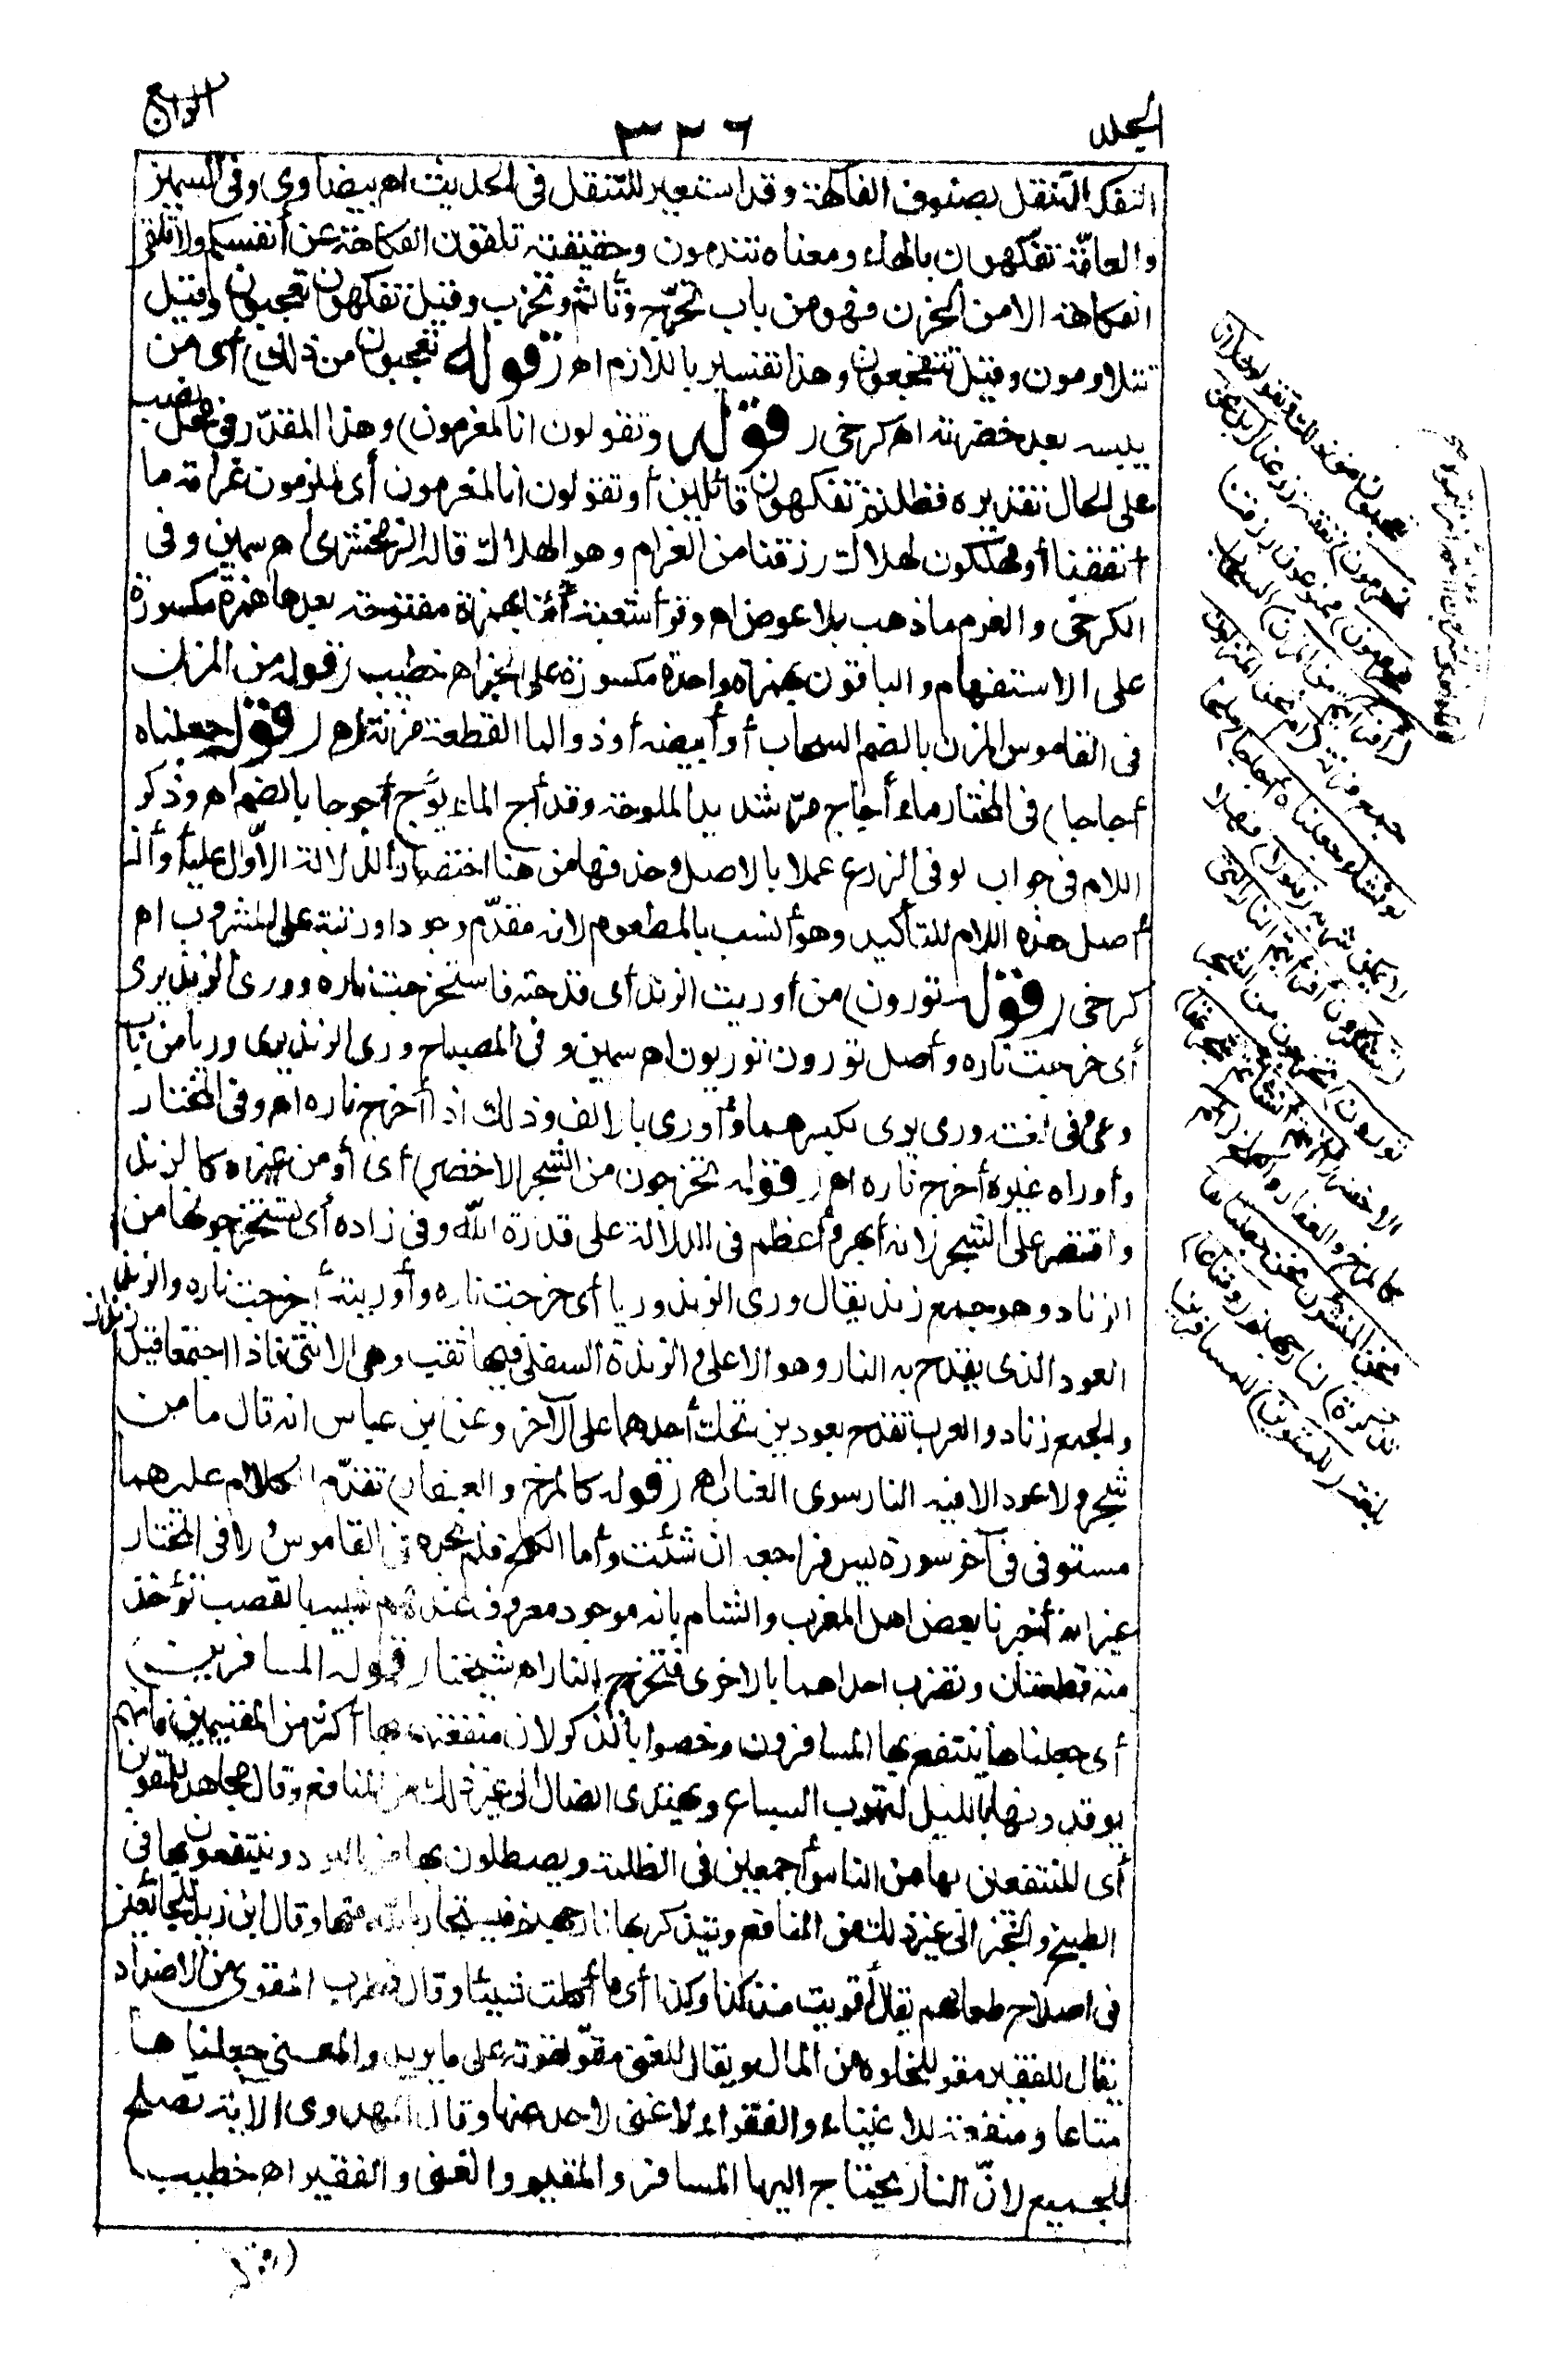 المجلد
٣٣٦
الرابع
التفكه التنقل بصنوف الفاكهة وقد استعير للتنقل فى الحديث اه بيضاوى وفى السمين
والعامّة تفكهون بالهاء ومعناه تندمون وحقيقته تلقون الفكاهة عن أنفسكم ولا تلقى
الفكاهة الا من الحزن فهو من باب تحرّج وتأثم وتحزب وقيل تفكهون تعجبون وقيل
تتلاومون وقيل تتفجعون وهذا تفسير باللازم اه (قوله تعجبون من ذلك) أى من
يبسه بعد خضرته اه كرخى (قوله وتقولون انا لمغرمون) وهذا المقدّر فى محل نصب
على الحال تقديره فظلتم تفكهون قائلين أو تقولون انا لمغرمون أى لملزمون غرامة ما
أنفقنا أو مهلكون لهلاك رزقنا من الغرام وهو الهلاك قاله الزمخشرى اه سمين وفى
الكرخى والغرم ما ذهب بلا عوض اه وقرأ شعبة أئنا بهمزة مفتوحة بعدها همزة مكسورة
على الاستفهام والباقون بهمزة واحدة مكسورة على الخبر اه خطيب (قوله من المزن
فى القاموس المزن بالضم السحاب أو أبيضه أو ذو الماء القطعة مزنة اه (قوله جعلناه
أجاجا) فى المختار ماء أجاج مرّ شديد الملوحة وقد أج الماء يؤج أجوجا بالضم اه وذكر
اللام فى جواب لو فى الزرع عملا بالاصل وحذفها من هنا اختصارا لدلالة الاوّل عليه أو أن
أصل هذه اللام للتأكيد وهو أنسب بالمطعوم لانه مقدّم وجودا ورتبة على المشروب اه
كرخى (قوله تورون) من أوريت الزند أى قدحته فاستخرجت ناره وورى الزند يرى
أى خرجت ناره وأصل تورون توريون اه سمين وفى المصباح ورى الزند يرى وريا من باب
وعى وفى لغة ورى يرى بكسرهما وأورى بالالف وذلك اذا أخرج ناره اه وفى المختار
وأوراه غيره أخرج ناره اه (قوله تخرجون من الشجر الاخضر) أى أو من غيره كالزند
واقتصر على الشجر لانه أبهر وأعظم فى الدلالة على قدرة الله وفى زاده أى تستخرجونها من
الزناد وهو جمع زند يقال ورى الزند وريا أى خرجت ناره وأوريته أخرجت ناره والزند
العود الذى يقدح به النار وهو الاعلى والزندة السفلى فيها ثقب وهى الانثى فاذا اجتمعا قيل زندان
والجمع زناد والعرب تقدح بعودين تحك أحدهما على الآخر وعن ابن عباس انه قال ما من
شجر ولا عود الا فيه النار سوى العناب اه (قوله كالمرخ والعفار) تقدّم الكلام عليهما
مستوفى فى آخر سورة يس فراجعه ان شئت وأما الكلخ فلم نجده فى القاموس ولا فى المختار
غير انه أخبرنا بعض اهل المغرب والشام بانه موجود معروف عندهم شبيه بالقصب تؤخذ
منه قطعتان وتضرب احداهما بالاخرى فتخرج النار اه شيخنا (قوله المسافرين)
أى جعلناها ينتفع بها المسافرون وخصوا بالذكر لان منفعتهم بها أكثر من المقيمين فانهم
يوقدونها بالليل لتهرب السباع ويهتدى الضال الى غير ذلك من المنافع وقال مجاهد للمقوين
أى للمنتفعين بها من الناس أجمعين فى الظلمة ويصطلون بها من البرد وينتفعون بها فى
الطبخ والخبز الى غير ذلك من المنافع ويتذكر بها نار جهنم فيستجار بالله منها وقال ابن زيد للجائعين
فى اصلاح طعامهم يقال أقويت منذ كذا وكذا أى ما أكلت شيئا وقال قطرب المقوى من الاضداد
يقال للفقير مقو لخلوه من المال ويقال للغنى مقو لقوته على ما يريد والمعنى جعلناها
متاعا ومنفعة للاغنياء والفقراء لا غنى لاحد عنها وقال المهدوى الآية تصلح
للجميع لانّ النار يحتاج اليها المسافر والمقيم والغنى والفقير اه خطيب
(قوله
تعجبون من ذلك وتقولون (انا
لمغرمون) نفقة زرعنا (بل نحن
محرومون) ممنوعون رزقنا
جمع مزنة (أم نحن المنزلون
لو نشاء جعلناه أجاجا) ملحا
لا يمكن شربه (فلولا) فهلا
(تشكرون أفرأيتم النار التى
تورون) تخرجون من الشجر
الاخضر
كالمرخ والعفار والكلخ (أم
نحن المنشئون نحن جعلناها
تذكرة) لنار جهنم (ومتاعا)
بلغة (للمقوين) للمسافرين